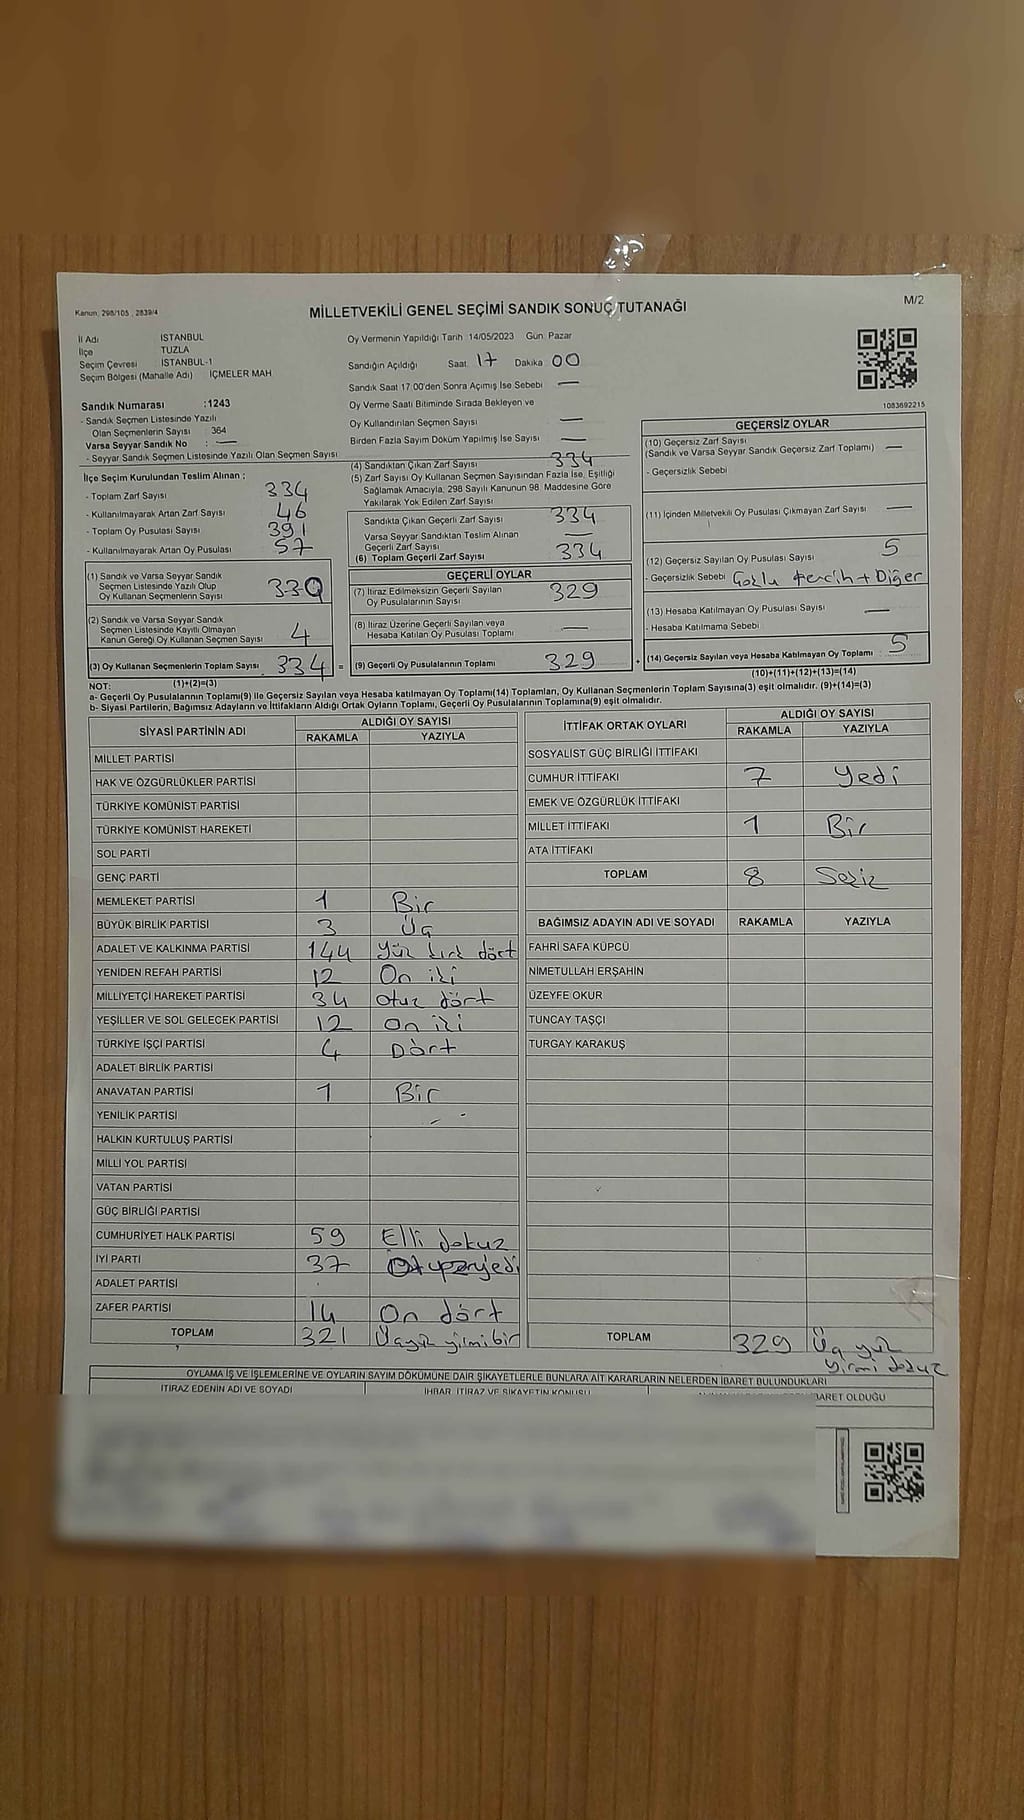 M/2
Kanun: 298/105 , 2839/4
MİLLETVEKİLİ GENEL SEÇİMİ SANDIK SONUÇ TUTANAĞI
İl Adı İSTANBUL
İlçe TUZLA
Seçim Çevresi İSTANBUL-1
Seçim Bölgesi (Mahalle Adı) İÇMELER MAH
Sandık Numarası :1243
- Sandık Seçmen Listesinde Yazılı
Olan Seçmenlerin Sayısı 364
Varsa Seyyar Sandık No : —
- Seyyar Sandık Seçmen Listesinde Yazılı Olan Seçmen Sayısı
Oy Vermenin Yapıldığı Tarih :14/05/2023 Gün: Pazar
Sandığın Açıldığı Saat 17 Dakika 00
Sandık Saat 17:00'den Sonra Açımış İse Sebebi —
Oy Verme Saati Bitiminde Sırada Bekleyen ve
Oy Kullandırılan Seçmen Sayısı —
Birden Fazla Sayım Döküm Yapılmış İse Sayısı —
1083692215
İlçe Seçim Kurulundan Teslim Alınan :
- Toplam Zarf Sayısı 334
- Kullanılmayarak Artan Zarf Sayısı 46
- Toplam Oy Pusulası Sayısı 391
- Kullanılmayarak Artan Oy Pusulası 57
(1) Sandık ve Varsa Seyyar Sandık
Seçmen Listesinde Yazılı Olup
Oy Kullanan Seçmenlerin Sayısı 330
(2) Sandık ve Varsa Seyyar Sandık
Seçmen Listesinde Kayıtlı Olmayan
Kanun Gereği Oy Kullanan Seçmen Sayısı 4
(3) Oy Kullanan Seçmenlerin Toplam Sayısı 334 =
(1)+(2)=(3)
(4) Sandıktan Çıkan Zarf Sayısı 334
(5) Zarf Sayısı Oy Kullanan Seçmen Sayısından Fazla İse, Eşitliği
Sağlamak Amacıyla, 298 Sayılı Kanunun 98. Maddesine Göre
Yakılarak Yok Edilen Zarf Sayısı
Sandıkta Çıkan Geçerli Zarf Sayısı 334
Varsa Seyyar Sandıktan Teslim Alınan
Geçerli Zarf Sayısı —
(6) Toplam Geçerli Zarf Sayısı 334
GEÇERLİ OYLAR
(7) İtiraz Edilmeksizin Geçerli Sayılan
Oy Pusulalarının Sayısı 329
(8) İtiraz Üzerine Geçerli Sayılan veya
Hesaba Katılan Oy Pusulası Toplamı —
(9) Geçerli Oy Pusulalarının Toplamı 329 +
GEÇERSİZ OYLAR
(10) Geçersiz Zarf Sayısı
(Sandık ve Varsa Seyyar Sandık Geçersiz Zarf Toplamı) —
- Geçersizlik Sebebi
(11) İçinden Milletvekili Oy Pusulası Çıkmayan Zarf Sayısı —
(12) Geçersiz Sayılan Oy Pusulası Sayısı 5
- Geçersizlik Sebebi Çoklu tercih + Diğer
(13) Hesaba Katılmayan Oy Pusulası Sayısı —
- Hesaba Katılmama Sebebi
(14) Geçersiz Sayılan veya Hesaba Katılmayan Oy Toplamı : 5
(10)+(11)+(12)+(13)=(14)
NOT:
a- Geçerli Oy Pusulalarının Toplamı(9) ile Geçersiz Sayılan veya Hesaba katılmayan Oy Toplamı(14) Toplamları, Oy Kullanan Seçmenlerin Toplam Sayısına(3) eşit olmalıdır. (9)+(14)=(3)
b- Siyasi Partilerin, Bağımsız Adayların ve İttifakların Aldığı Ortak Oyların Toplamı, Geçerli Oy Pusulalarının Toplamına(9) eşit olmalıdır.
SİYASİ PARTİNİN ADI ALDIĞI OY SAYISI
RAKAMLA YAZIYLA
MİLLET PARTİSİ
HAK VE ÖZGÜRLÜKLER PARTİSİ
TÜRKİYE KOMÜNİST PARTİSİ
TÜRKİYE KOMÜNİST HAREKETİ
SOL PARTİ
GENÇ PARTİ
MEMLEKET PARTİSİ 1 Bir
BÜYÜK BİRLİK PARTİSİ 3 Üç
ADALET VE KALKINMA PARTİSİ 144 Yüz kırk dört
YENİDEN REFAH PARTİSİ 12 On iki
MİLLİYETÇİ HAREKET PARTİSİ 34 Otuz dört
YEŞİLLER VE SOL GELECEK PARTİSİ 12 On iki
TÜRKİYE İŞÇİ PARTİSİ 4 Dört
ADALET BİRLİK PARTİSİ
ANAVATAN PARTİSİ 1 Bir
YENİLİK PARTİSİ
HALKIN KURTULUŞ PARTİSİ
MİLLİ YOL PARTİSİ
VATAN PARTİSİ
GÜÇ BİRLİĞİ PARTİSİ
CUMHURİYET HALK PARTİSİ 59 Elli dokuz
İYİ PARTİ 37 Otuzyedi
ADALET PARTİSİ
ZAFER PARTİSİ 14 On dört
TOPLAM 321 Üçyüz yirmibir
İTTİFAK ORTAK OYLARI ALDIĞI OY SAYISI
RAKAMLA YAZIYLA
SOSYALİST GÜÇ BİRLİĞİ İTTİFAKI
CUMHUR İTTİFAKI 7 Yedi
EMEK VE ÖZGÜRLÜK İTTİFAKI
MİLLET İTTİFAKI 1 Bir
ATA İTTİFAKI
TOPLAM 8 Sekiz
BAĞIMSIZ ADAYIN ADI VE SOYADI RAKAMLA YAZIYLA
FAHRİ SAFA KÜPCÜ
NİMETULLAH ERŞAHİN
ÜZEYFE OKUR
TUNCAY TAŞÇI
TURGAY KARAKUŞ
TOPLAM 329 Üç yüz
yirmi dokuz
OYLAMA İŞ VE İŞLEMLERİNE VE OYLARIN SAYIM DÖKÜMÜNE DAİR ŞİKAYETLERLE BUNLARA AİT KARARLARIN NELERDEN İBARET BULUNDUKLARI
İTİRAZ EDENİN ADI VE SOYADI İHBAR, İTİRAZ VE ŞİKAYETİN KONUSU İBARET OLDUĞU